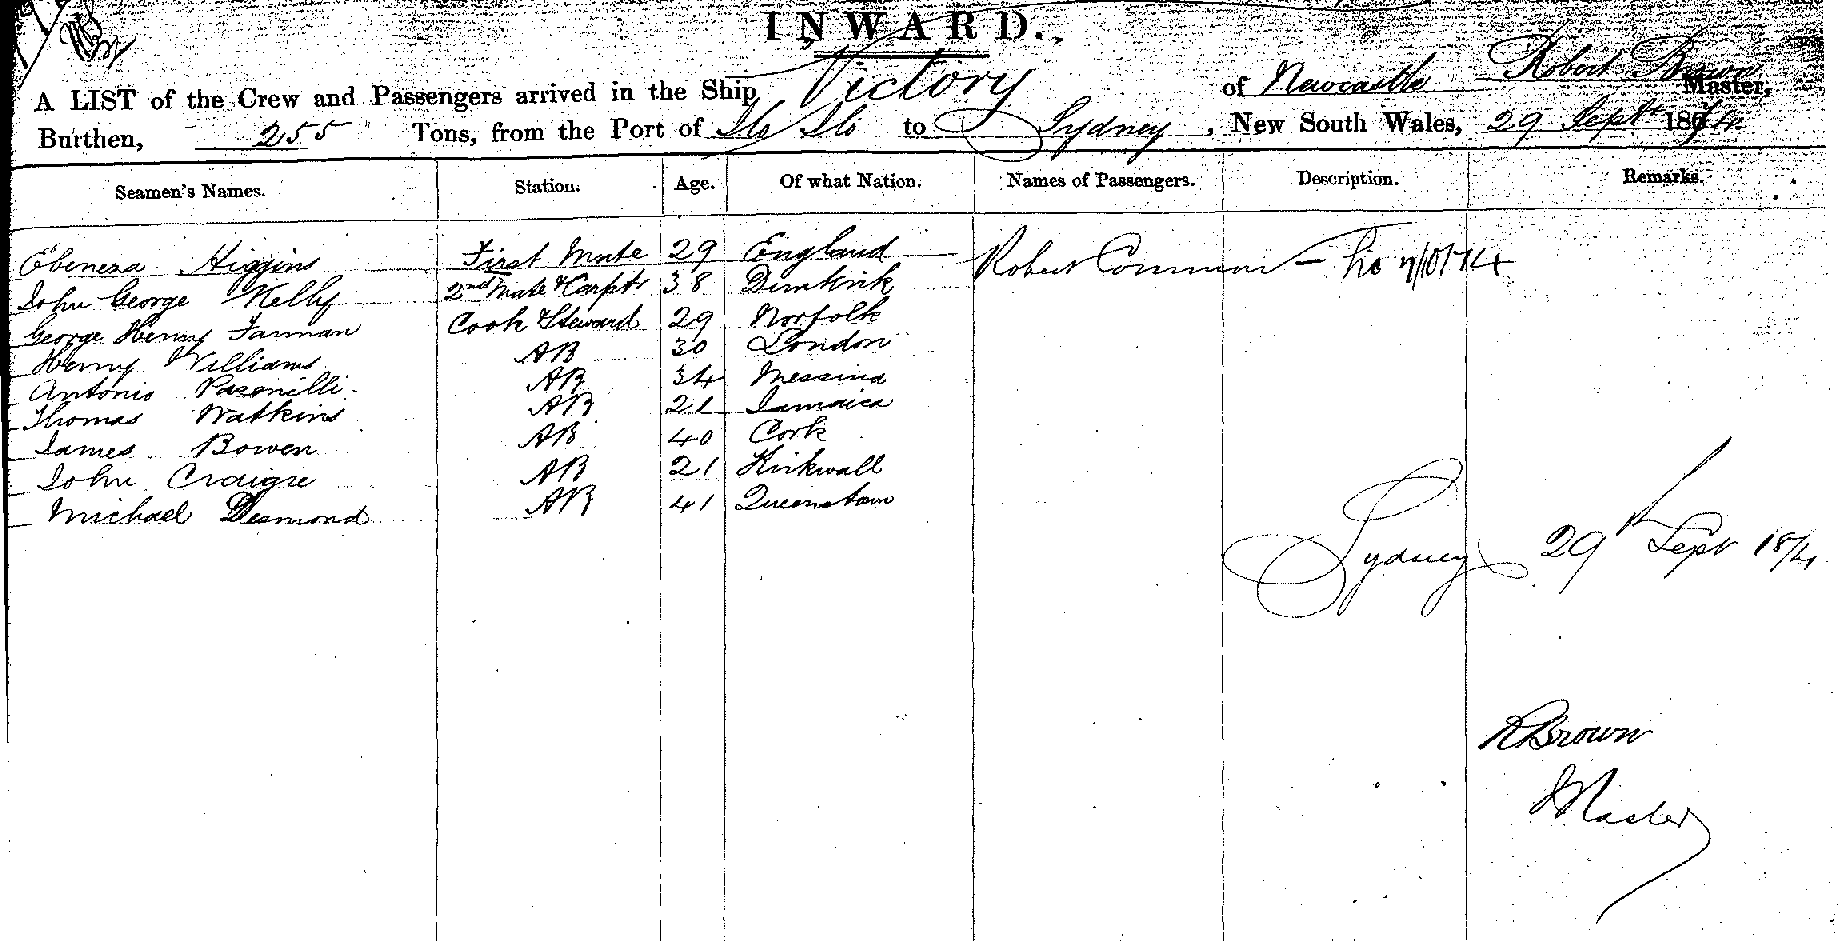 INWARD.
A LIST of the Crew and Passengers arrived in the Ship Victory of Newcastle Robert Brown Master,
Burthen, 255 Tons, from the Port of Ilo Ilo to Sydney, New South Wales, 29 Sept 1874
Seamen's Names. Station. Age. Of what Nation. Names of Passengers. Description. Remarks.
Ebeneza Higgins First Mate 29 England Robert Common
John George Kelly 2nd Mate & Carptr 38 Dunkirk
George Henry Farman Cook & Steward 29 Norfolk
Henry Williams AB 30 London
Antonio AB 34 Messina
Thomas Watkins AB 21 Jamaica
James Bowen AB 40 Cork
John Craigie AB 21 Kirkwall
Michael Desmond AB 41 Queenstown
Sydney 29th Sept 1874
R Brown
Master